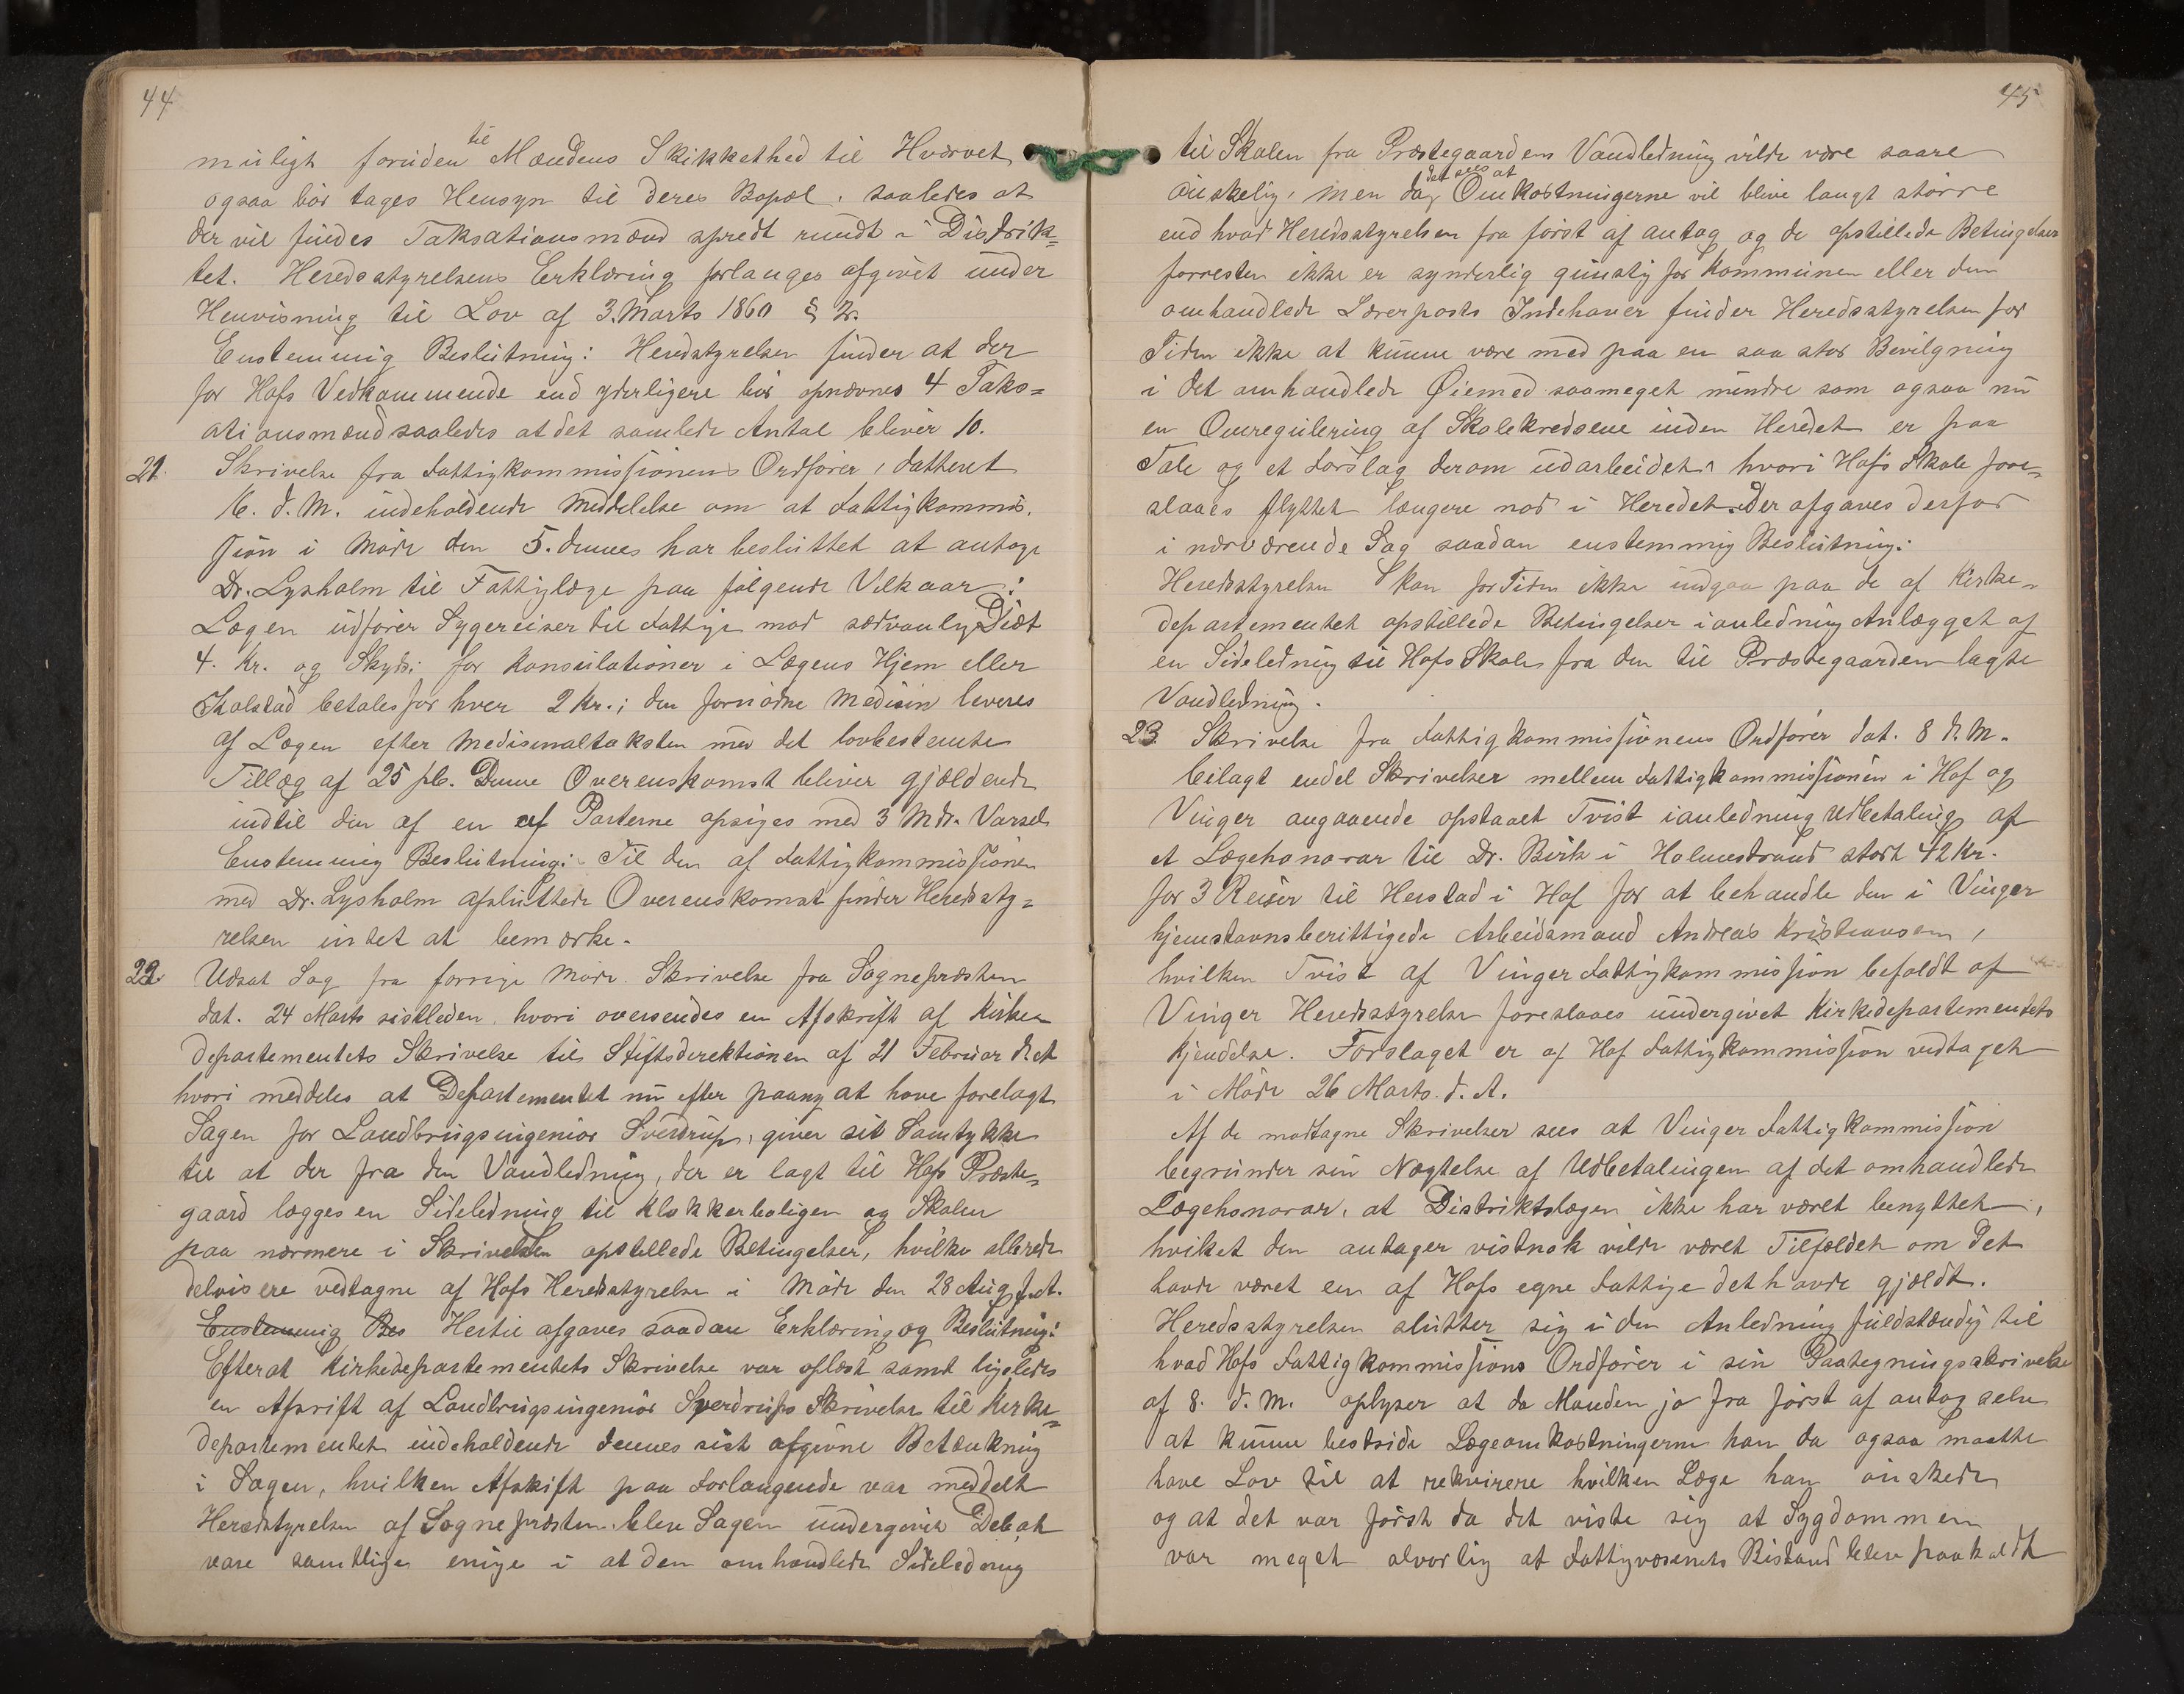 44
muligt foruden til Mændens Skikkethed til Hvervet
ogsaa bør tages Hensyn til deres Bopæl, saaledes at
der vil findes Taksationsmænd spredt rundt i Distrik=
tet. Heredsstyrelsens Erklæring forlanges afgivet under
Henvisning til Lov af 3. Marts 1860 § 2.
Enstemmig Beslutning: Heredstyrelsen finder at der
for Hofs Vedkommende end yderligere bør opnævnes 4 Taks=
ationsmænd saaledes at det samlede Antal bliver 10.
21. Skrivelse fra Fattigkommissionens Ordfører, datteret
16. d.M. indeholdende Meddelelse om at Fattigkommis,
sion i Møde den 5. dennes har besluttet at antage
Dr. Lysholm til Fattiglæge paa følgende Vilkaar:
Lægen udfører Sygereiser til Fattige mod sædvanlig Diæt
4. Kr. og Skyds; for Konsulationer i Lægens Hjem eller
Skolstad betales for hver 2 Kr.; den fornødne Medisin leveres
af Lægen efter Medisinaltaksten med det lovbestemte
Tillæg af 25 pct. Denne Overenskomst bliver gjældende
indtil den af en af Parterne opsiges med 3 Mdr. Varsel.
Enstemmig Beslutning: Til den af Fattigkommissionen
med Dr. Lysholm afsluttede Overenskomst finder Heredssty=
relsen intet at bemærke.
22. Udsat Sag fra forrige Møde. Skrivelse fra Sognepræsten
dat. 24 Marts sistleden, hvori oversendes en Afskrift af Kirke
departementets Skrivelse til Stiftsdirektionen af 21 Februar
hvori meddeles at Departementet nu efter paany at have forelagt
Sagen for Landbrugsingeniør Sverdrup, giver sit Samtykke
til at der fra den Vandledning, der er lagt til Hofs Præste=
gaard lægges en Sideledning til Klokkerboligen og Skolen
paa nærmere i Skrivelsen opstillede Betingelser, hvilke allerede
delvis ere vedtagne af Hofs Heredsstyrelse i Møde den 28 Aug. f.A.
Enstemmig Bes Hertil afgaves saadan Erklæring og Beslutning:
Efterat Kirkedepartementets Skrivelse var oplæst samt ligeledes
en Afskrift af Landbrugsingeniør Sverdrups Skrivelse til Kirke=
departementet indeholdende dennes sist afgivne Betænkning
i Sagen, hvilken Afskrift paa Forlangende var meddelt
Heredstyrelsen af Sognepræsten. blev Sagen undergivet Debat
vare samtlige enige i at den omhandlede Sideledning
45
til Skolen fra Præstegaardens Vandledning vilde være saare
ønskelig, men da det sees at Omkostningerne vil blive langt større
end hvad Heredsstyrelsen fra først af antog og de opstillede Betingelser
forresten ikke er synderlig gunstig for Kommunen eller den
omhandlede Lærerposts Indehaver finder Heredsstyrelsen for
Tiden ikke at kunne være med paa en saa stor Bevilgning
i det omhandlede Øiemed saameget mindre som ogsaa nu
en Omregulering af Skolekredsene inden Heredet er paa
Tale og et Forslag derom udarbeidet, hvori Hofs Skole fore=
slaaes flyttet længere nord i Heredet. Der afgaves derfor
i nærværende Sag saadan enstemmig Beslutning:
Heredsstyrelsen kan for Tiden ikke indgaa paa de af Kirke=
departementet opstillede Betingelser i anledning Anlægget af
en Sideledning til Hofs Skole fra den til Præstegaarden lagte
Vandledning.
23. Skrivelse fra Fattigkommissionens Ordfører dat. 8 d.M.
bilagt endel Skrivelser mellem Fattigkommissionen i Hof og
Vinger angaaende opstaaet Tvist i anledning Udbetaling af
et Lægehonorar til Dr. Birk i Holmestrand stort 42 Kr.
for 3 Reiser til Herstad i Hof for at behandle den i Vinger
hjemstavnsberittigede Arbeidsmand Andreas Kristiansen,
hvilken Tvist af Vinger Fattigkommission befaldt af
Vinger Heredsstyrelse foreslaaes undergivet Kirkedepartementets
Kjendelse. Forslaget er af Hof Fattigkommission vedtaget
i Møde 26 Marts d. A.
Af de modtagne Skrivelser sees at Vinger Fattigkommission
begrunder sin Nægtelse af Udbetalingen af det omhandlede
Lægehonorar, at Distriktslægen ikke har været benyttet,
hvilket den antager vistnok vilde været Tilfældet om det
havde været en af Hofs egne Fattige det havde gjældt.
Heredsstyrelsen slutter sig i den Anledning fuldstændig til
hvad Hofs Fattigkommissions Ordfører i sin Paategningsskrivelse
af 8. d. M. oplyser at da Manden jo fra først af antog selv
at kunne bestride Lægeomkostningerne han da ogsaa maatte
have Lov til at rekvirere hvilken Læge han ønskede
og at det var først da det viste sig at Sygdommen
var meget alvorlig at Fattigvæsenets Bistand blev paakaldt